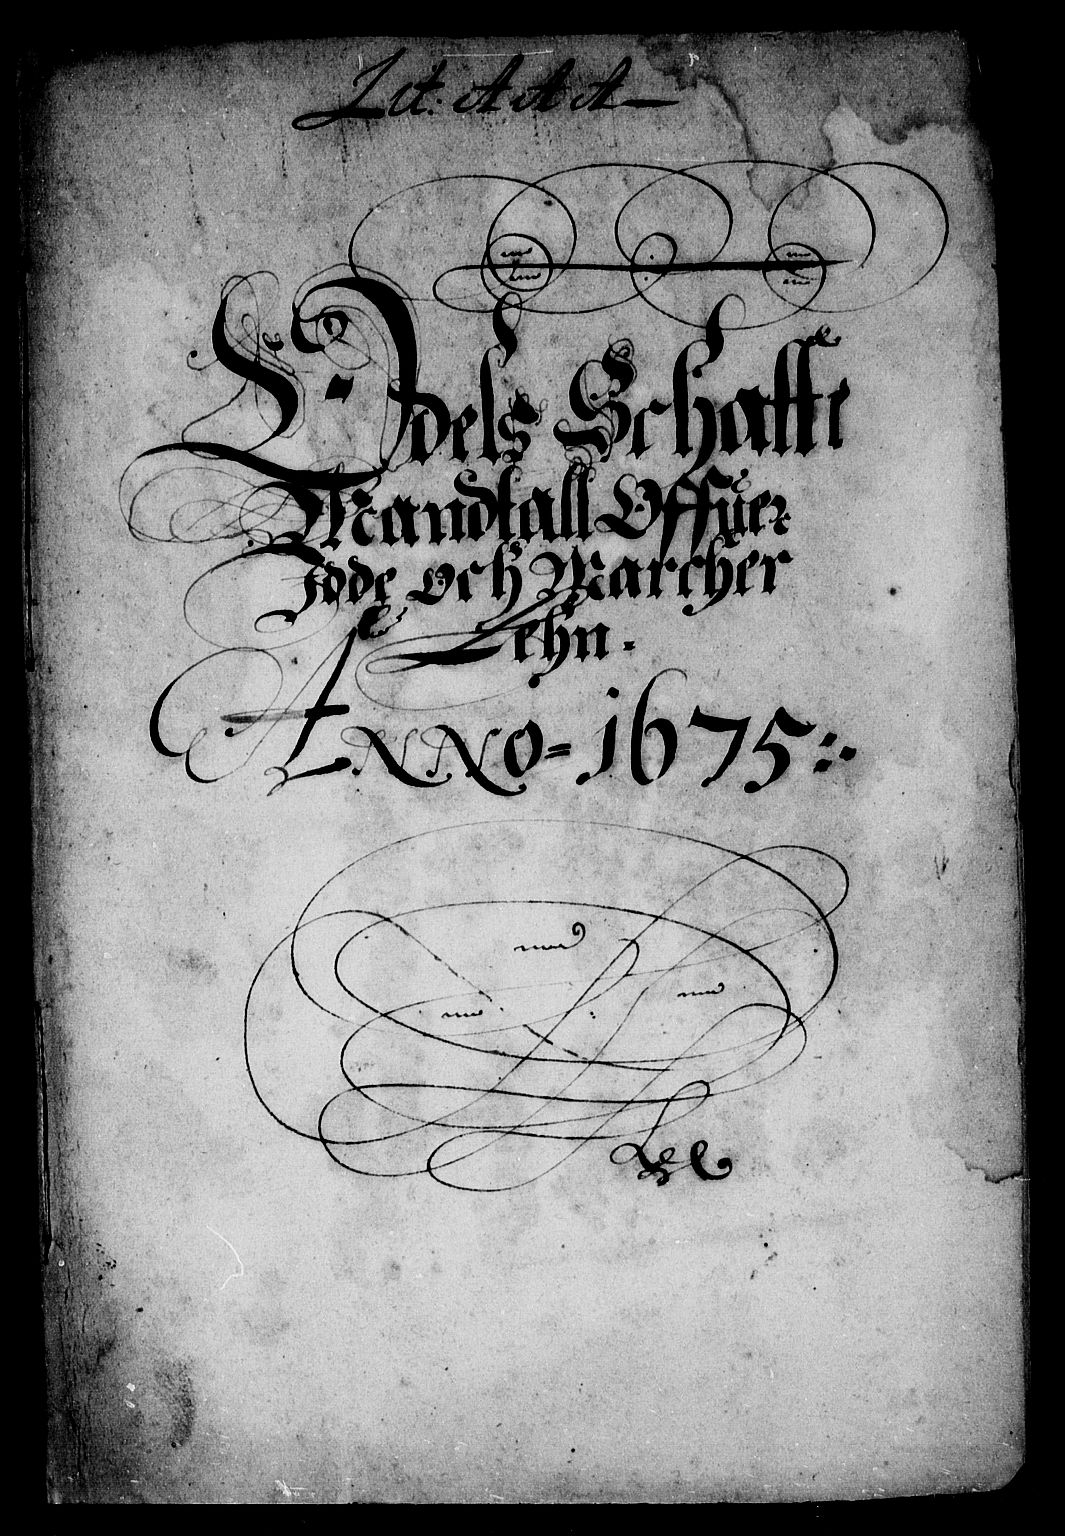 Lit: A A A —
Odels Schatts
Mandtall Offuer
Idde och Marcher
Lehn.
Anno = 1675